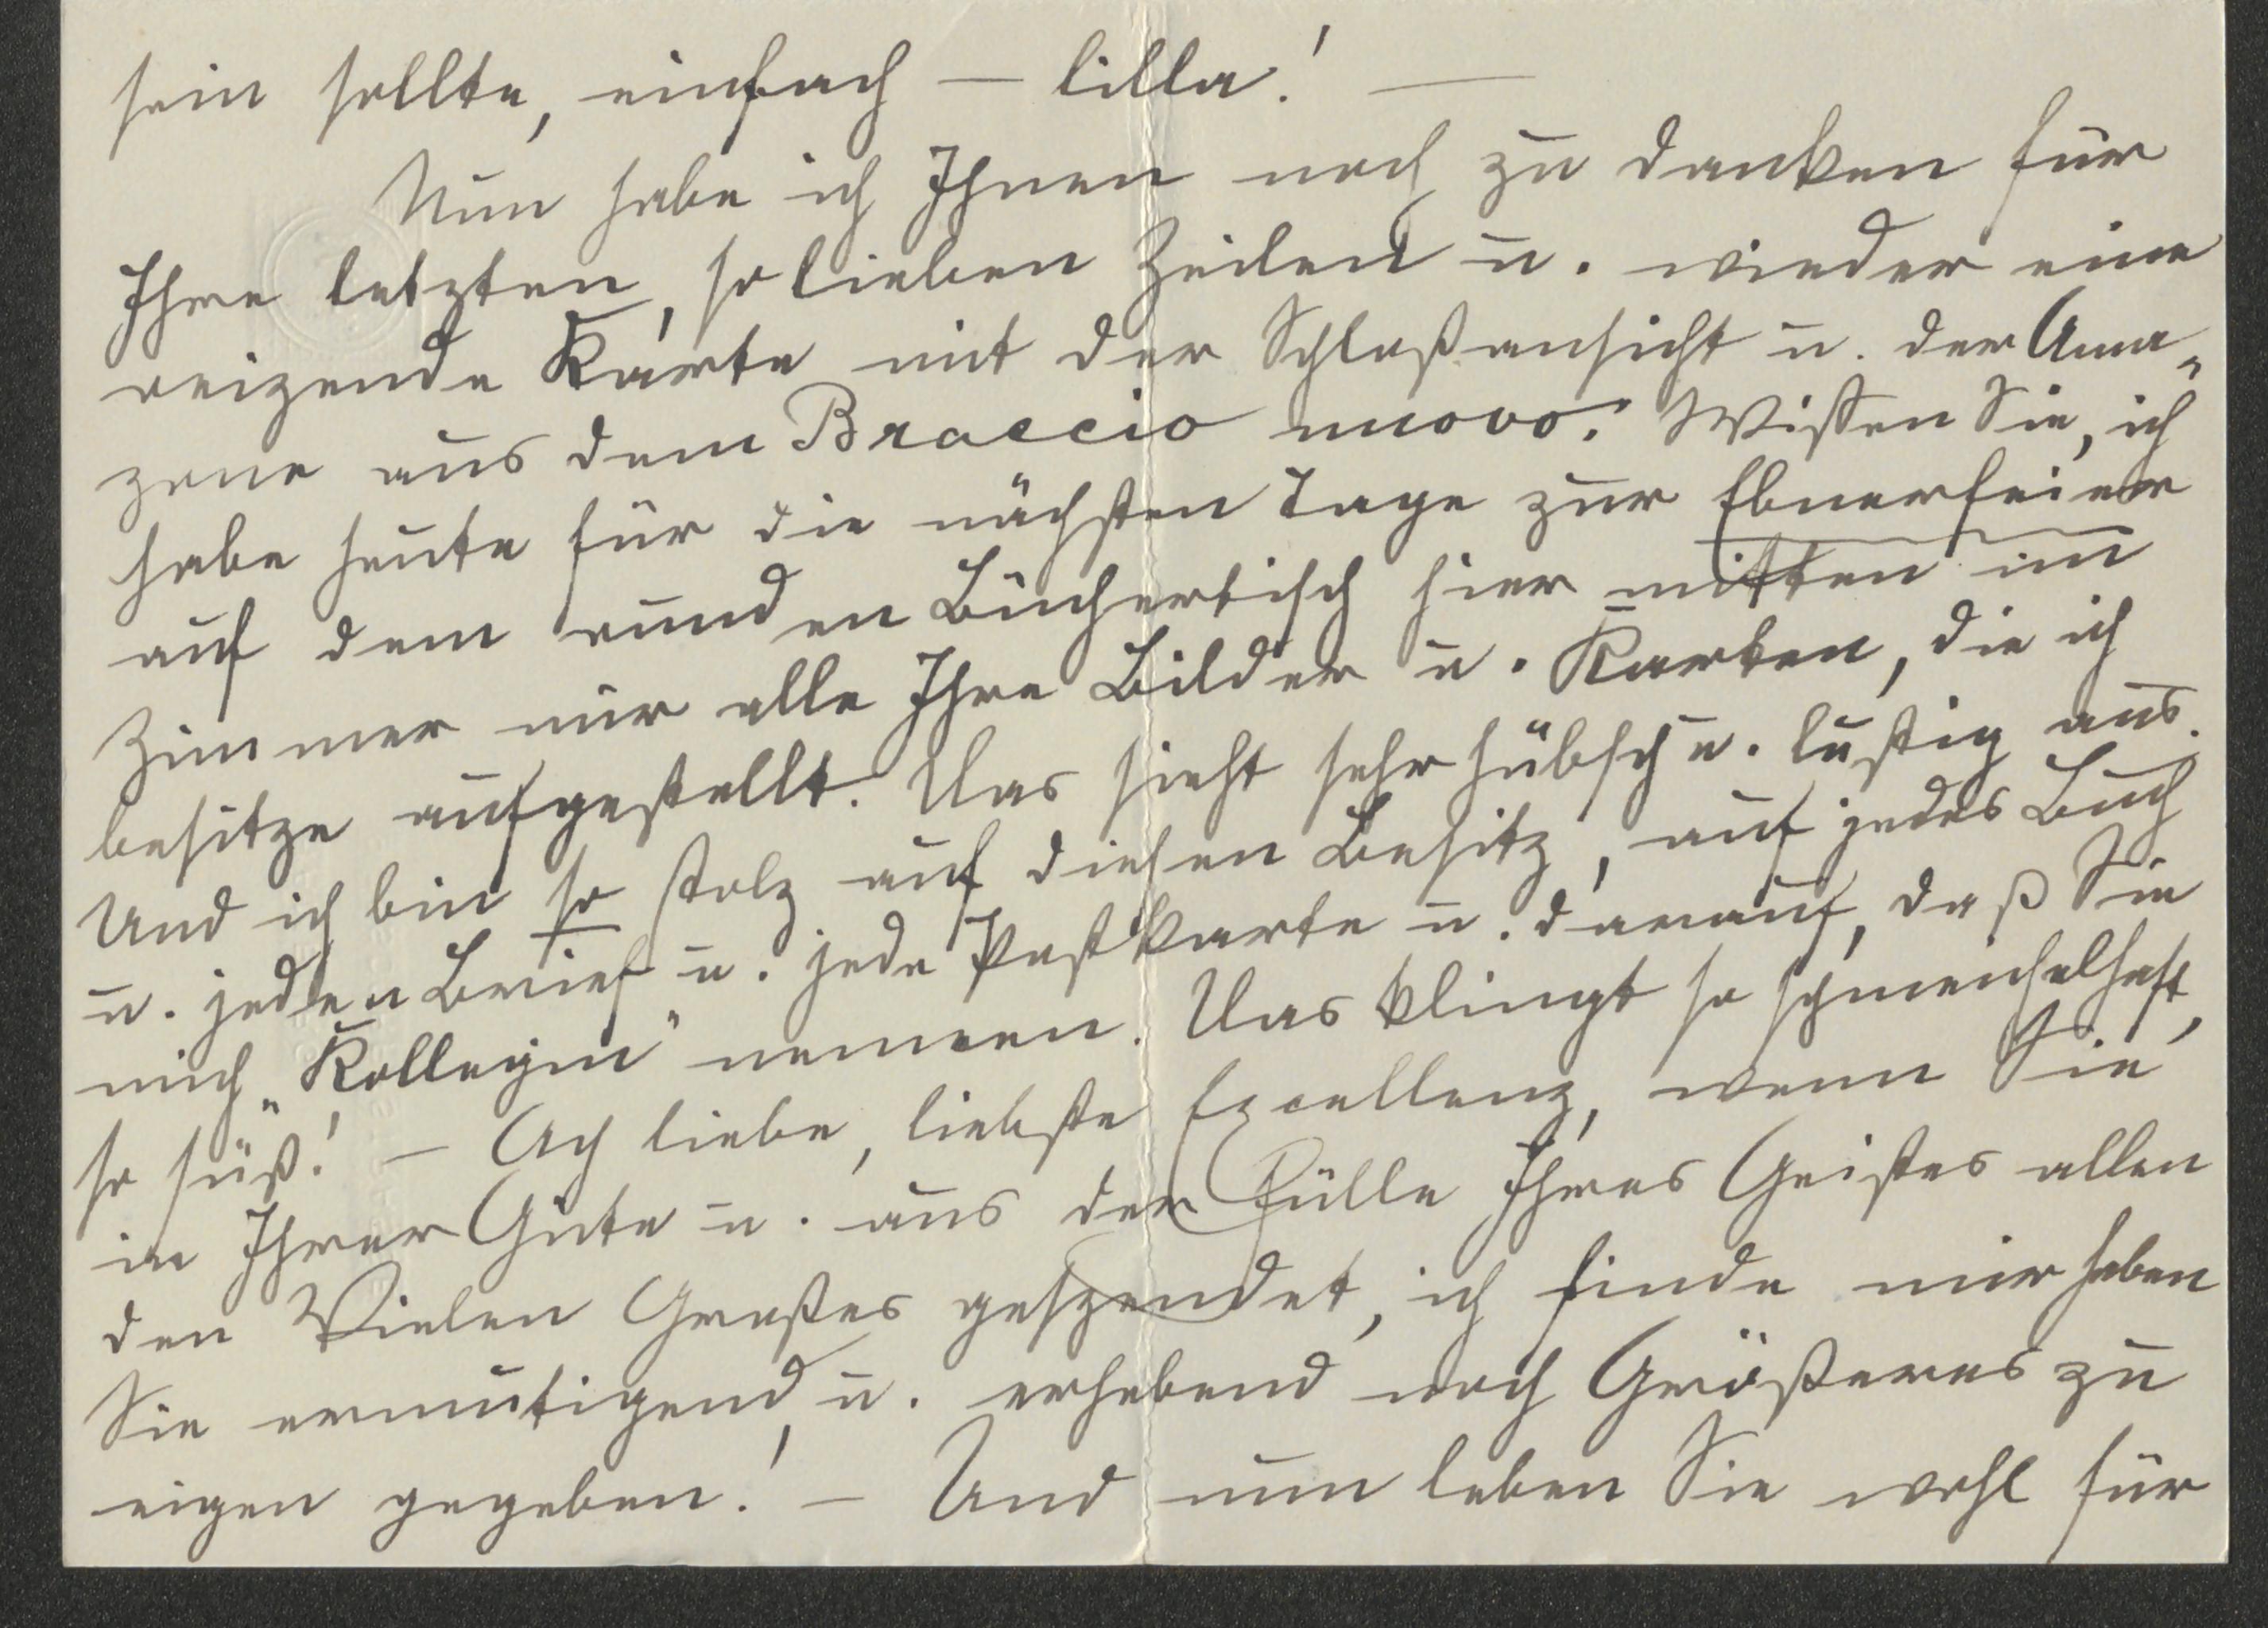 sein sollte, einfach – lilla! –
Nun habe ich Ihnen noch zu danken für
Ihre letzten, so lieben Zeilen u. wieder eine
reizende Karte mit der Schloßansicht u. der Ama-
zone aus dem Braccio nuovo. Wissen Sie, ich
habe heute für die nächsten Tage zur Ebnerfeier
auf dem runden Büchertisch hier mitten im
Zimmer mir alle Ihre Bilder u. Karten, die ich
besitze aufgestellt. Das sieht sehr hübsch u. lustig aus.
Und ich bin so stolz auf diesen Besitz, auf jedes Buch
u. jeden Brief u. jede Postkarte u. darauf, daß Sie
mich „Kollegin" nennen. Das klingt so schmeichelhaft,
so süß! – Ach liebe, liebste Excellenz, wenn Sie
in Ihrer Güte u. aus der Fülle Ihres Geistes allen
den Vielen Großes gespendet, ich finde mir haben
Sie ermutigend u. erhebend noch Größeres zu
eigen gegeben! – Und nun leben Sie wohl für